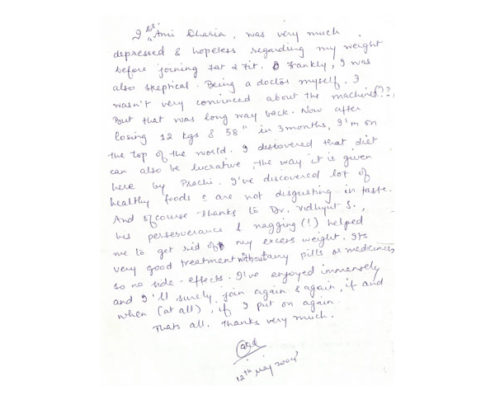 I Dr. Ami Dharia, was very much
depressed & hopeless regarding my weight
before joining Fat 2 Fit. Frankly, I was
also skeptical. Being a doctor myself, I
wasn't very convinced about the machines??.
But that was long way back. Now after
losing 12 kgs & 58" in 3 months, I'm on
the top of the world. I discovered that diet
can also be lucrative the way it is given
here by Prachi. I've discovered lot of
healthy foods c are not disgusting in taste.
And ofcourse thanks to Dr. Vidhyut S.,
his perseverance & nagging (!) helped
me to get rid of my excess weight. Its
very good treatment without any pills or medicines
so no side-effects. I've enjoyed immensely
and I'll surely join again & again, if and
when (at all), if I put on again.
Thats all. Thanks very much.
12th May 2004